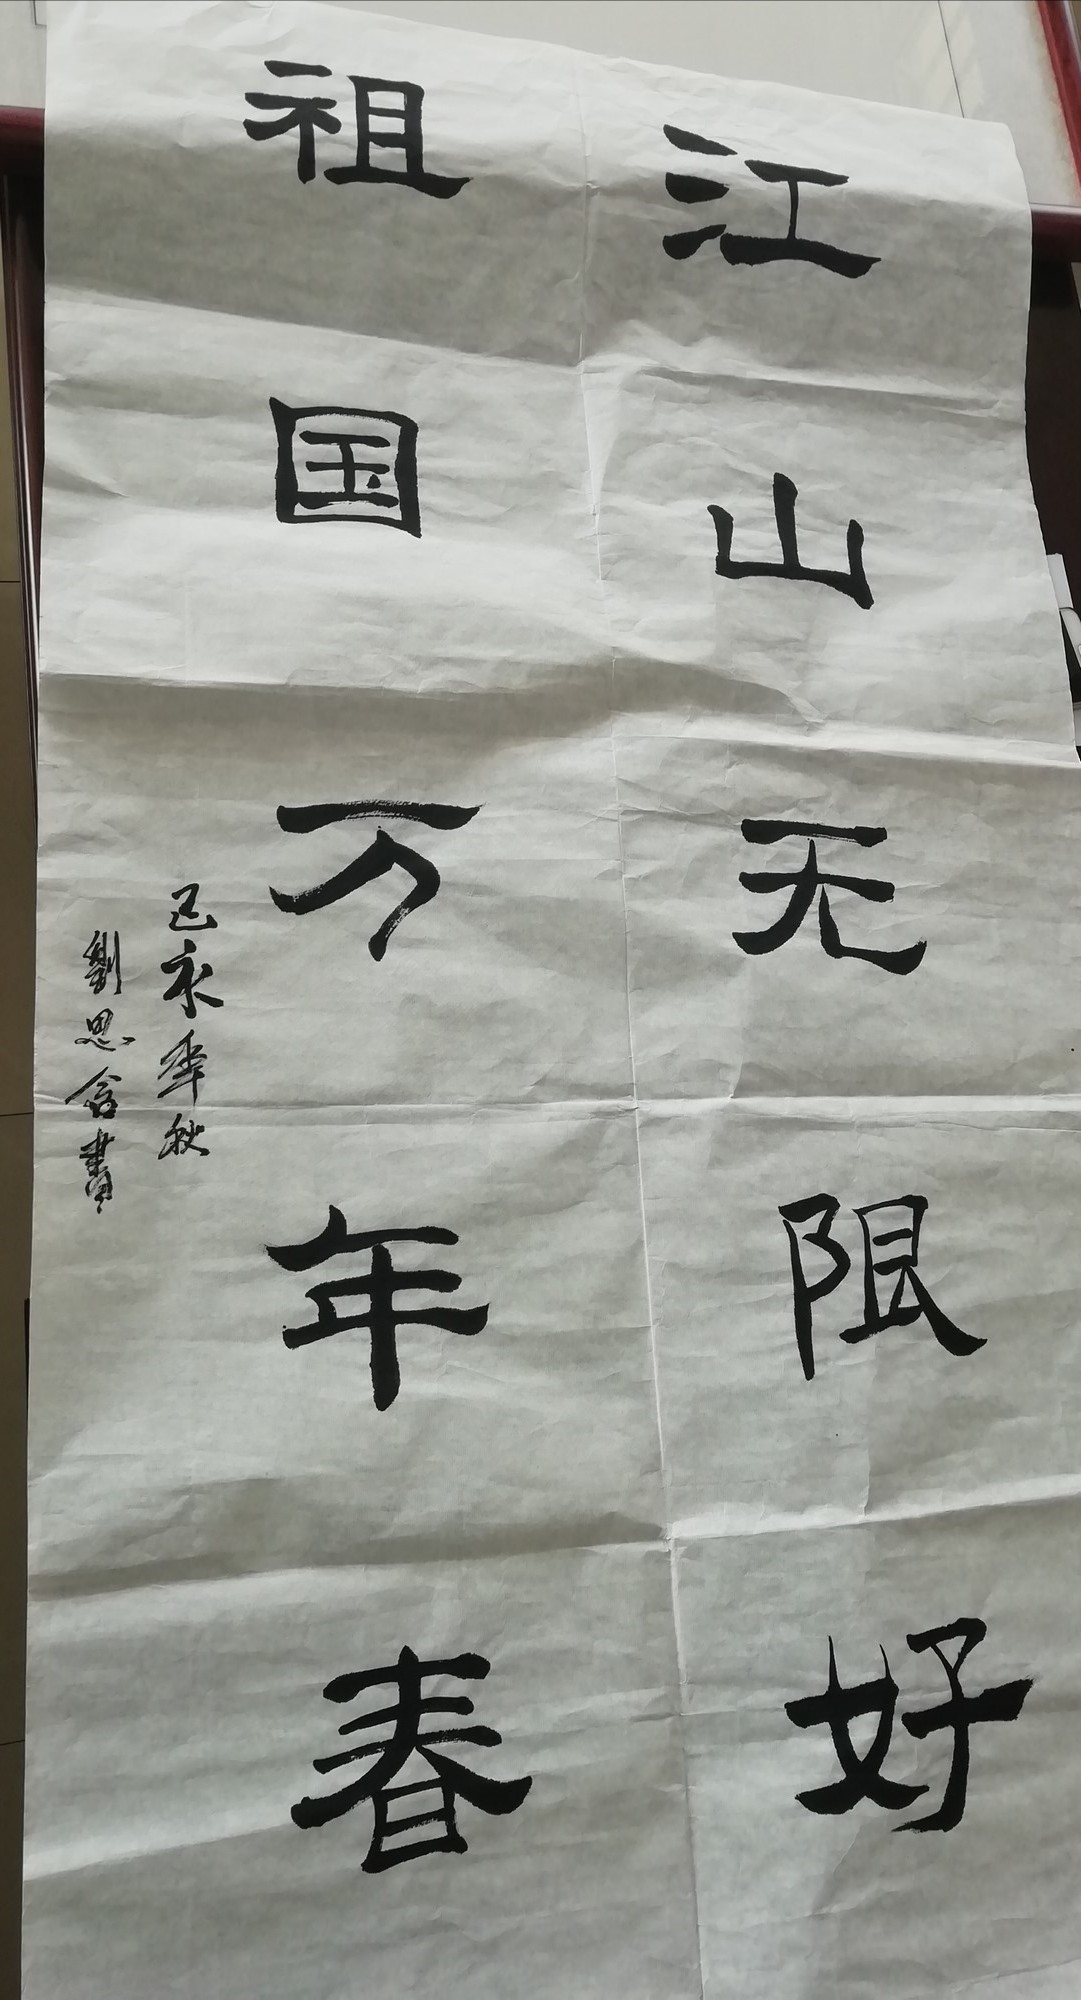 江山无限好
祖国万年春
己亥年秋
劉思含書